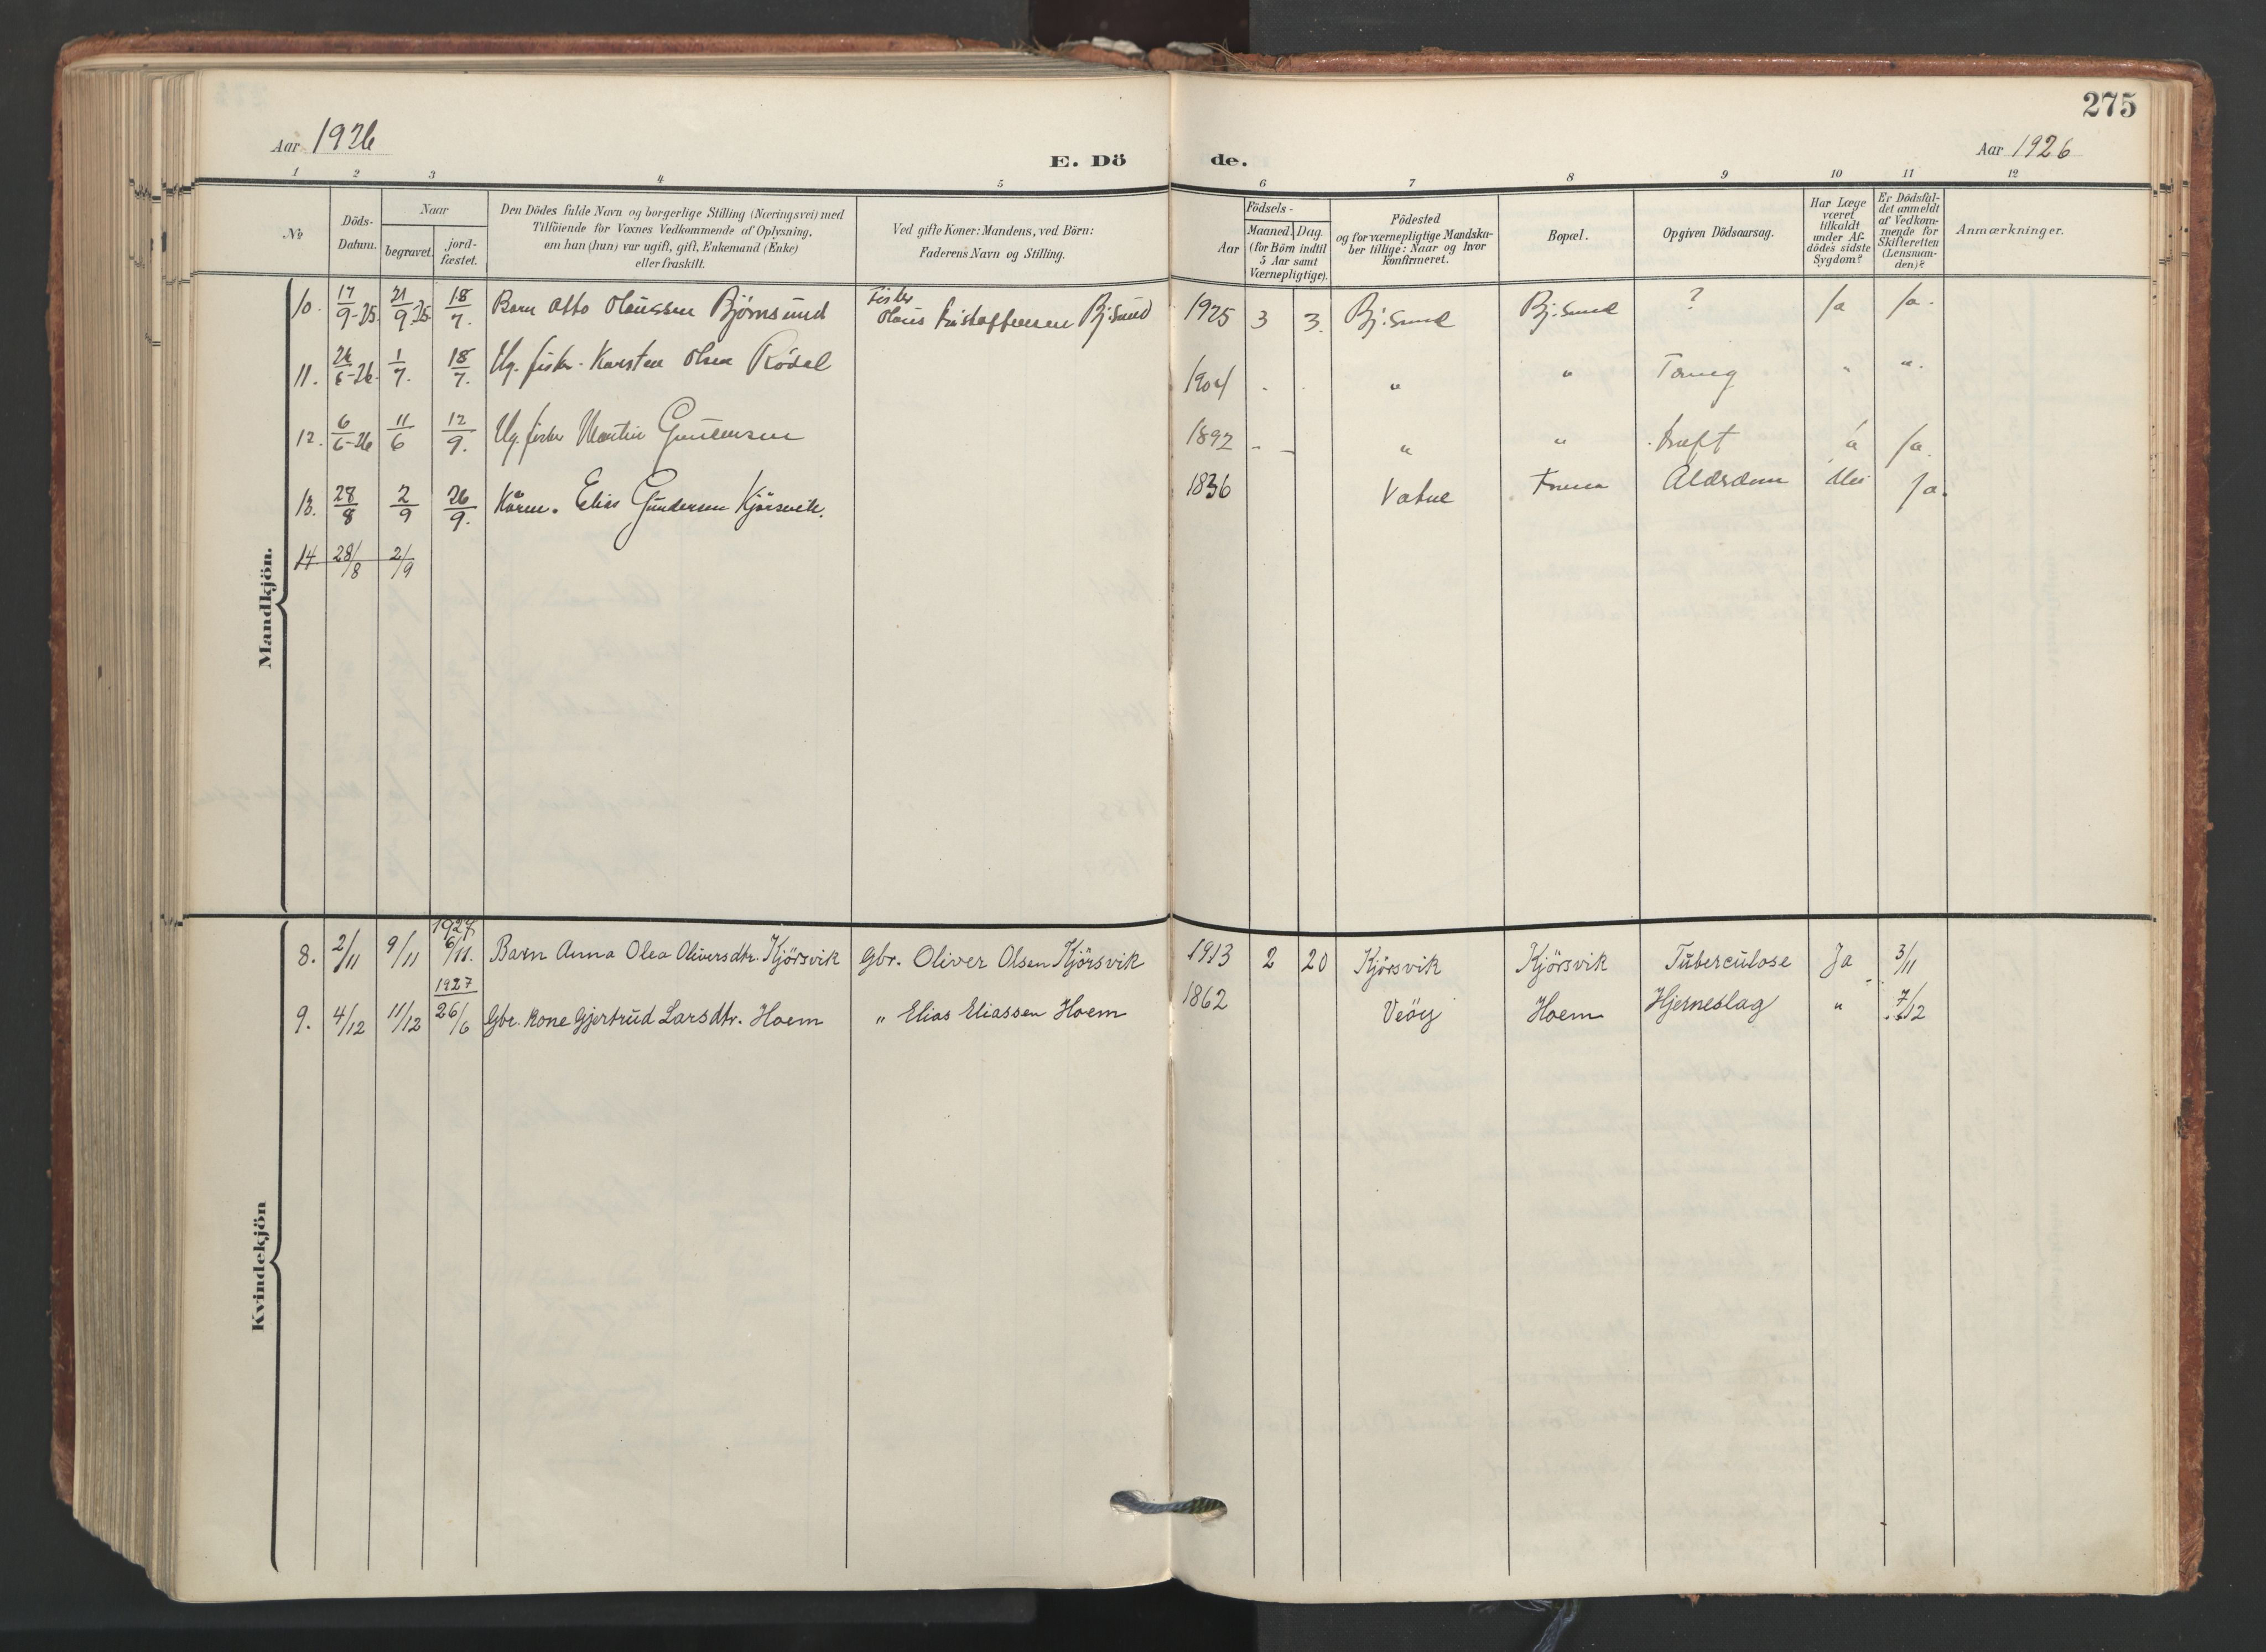 275
Aar 1926
E. Dö de.
Aar 1926
1 2 3 4 5 6 7 8 9 10 11 12
№
Döds-Datum.
Naar
begravet.
jord-fæstet.
Den Dödes fulde Navn og borgerlige Stilling (Næringsvei) med
Tilföiende for Voxnes Vedkommende af Oplysning,
om han (hun) var ugift, gift, Enkemand (Enke)
eller fraskilt.
Ved gifte Koner: Mandens, ved Börn:
Faderens Navn og Stilling.
Födsels-
Aar
Maaned.
Dag.
(for Börn indtil
5 Aar samt
Værnepligtige).
Födested
og for værnepligtige Mandska-
ber tillige: Naar og hvor
konfirmeret.
Bopæl.
Opgiven Dödsaarsag.
Har Læge
været
tilkaldt
under Af-
dödes sidste
Sygdom?
Er Dödsfal-
det anmeldt
af Vedkom-
mende for
Skifteretten
(Lensman-
den)?
Anmærkninger.
Mandkjön.
10. 17/9-25. 21/9-25 18/7. Barn Otto Olaussen Björnsund Fisker Olaus Kristoffersen Bj:sund 1925 3 3. Bj:sund Bj:sund ? Ja Ja.
11. 26/6-26. 1/7. 18/7. Ug. fisker Karsten Olsen Rödal 1904 - . " " " ".
12. 6/6-26 11/6 12/9. Ug. fisker Martin Gundersen 1892 - - " " Kræft Ja Ja.
13. 28/8 2/9 26/9. Kårm. Elias Gundersen Kjörsvik. 1836 Vatne Alderdom Nei Ja.
14 28/8 2/9
Kvindekjön
8. 2/11 9/11 1927 6/11. Barn Anna Olea Oliversdtr. Kjörsvik Gbr. Oliver Olsen Kjörsvik 1913 2 20 Kjörsvik Kjörsvik Tuberculose Ja 3/11
9. 4/12 11/12 1927 26/6 Gbr. kone Gjertrud Larsdtr. Hoem " Elias Eliassen Hoem 1862 Veöy Hoem Hjerneslag " 7/12